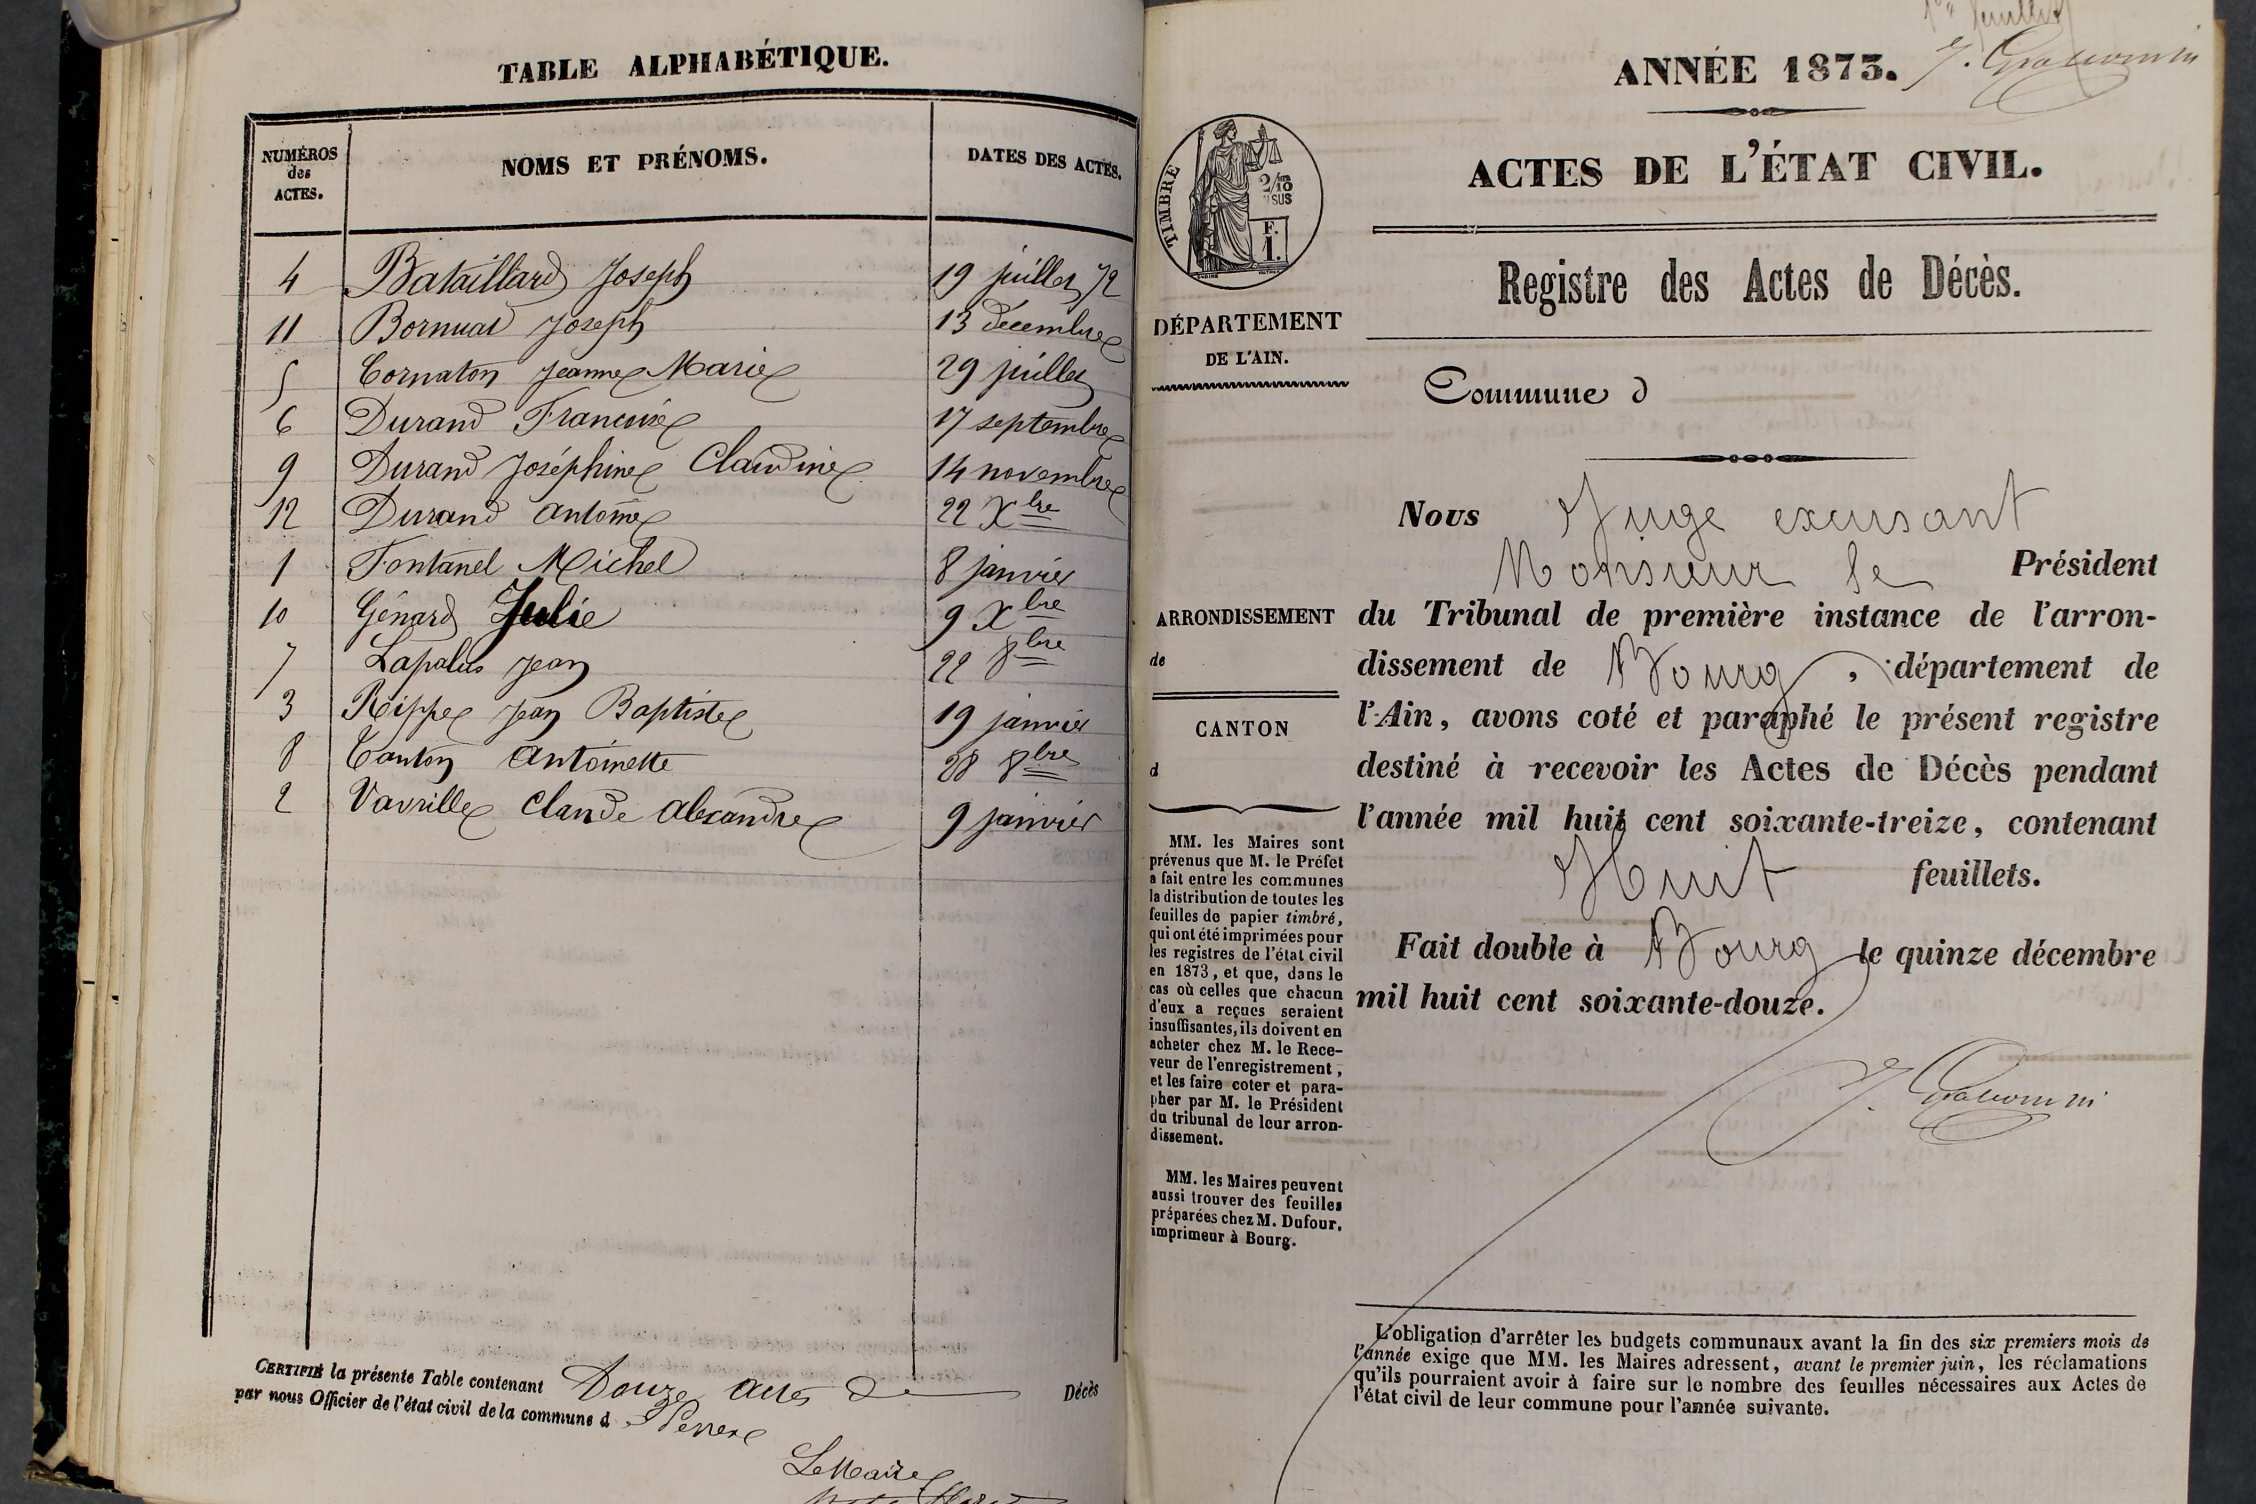 TABLE ALPHABÉTIQUE.
NUMÉROS des ACTES. NOMS ET PRÉNOMS. DATES DES ACTES.
4 Bataillard Joseph 19 juillet 72
11 Bornuat Joseph 13 décembre
5 Cornaton Jeanne Marie 29 juillet
6 Durand Francoise 17 septembre
9 Durand Joséphine Claudine 14 novembre
12 Durand Antoine 22 Xbre
1 Fontanel Michel 8 janvier
10 Génard Julie 9 Xbre
7 Lapalus Jean 22 8bre
3 Rippe Jean Baptiste 19 janvier
8 Tanton Antoinette 28 8bre
2 Vavrille Claude Alexandre 9 janvier
CERTIFIÉ la présente Table contenant Douze actes de Décès
par nous Officier de l'état civil de la commune d
Le Maire
1er feuillet
ANNÉE 1873.
ACTES DE L'ÉTAT CIVIL.
TIMBRE
2/10 SUS
F.
1.
Registre des Actes de Décès.
DÉPARTEMENT
DE L'AIN.
Commune d
Nous Juge excusant
Monsieur le Président
ARRONDISSEMENT
de
CANTON
d
du Tribunal de première instance de l'arron-
dissement de Bourg, département de
l'Ain, avons coté et paraphé le présent registre
destiné à recevoir les Actes de Décès pendant
l'année mil huit cent soixante-treize, contenant
Huit feuillets.
Fait double à Bourg le quinze décembre
mil huit cent soixante-douze.
MM. les Maires sont
prévenus que M. le Préfet
a fait entre les communes
la distribution de toutes les
feuilles de papier timbré,
qui ont été imprimées pour
les registres de l'état civil
en 1873, et que, dans le
cas où celles que chacun
d'eux a reçues seraient
insuffisantes, ils doivent en
acheter chez M. le Rece-
veur de l'enregistrement,
et les faire coter et para-
pher par M. le Président
du tribunal de leur arron-
dissement.
MM. les Maires peuvent
aussi trouver des feuilles
préparées chez M. Dufour,
imprimeur à Bourg.
L'obligation d'arrêter les budgets communaux avant la fin des six premiers mois de
l'année exige que MM. les Maires adressent, avant le premier juin, les réclamations
qu'ils pourraient avoir à faire sur le nombre des feuilles nécessaires aux Actes de
l'état civil de leur commune pour l'année suivante.